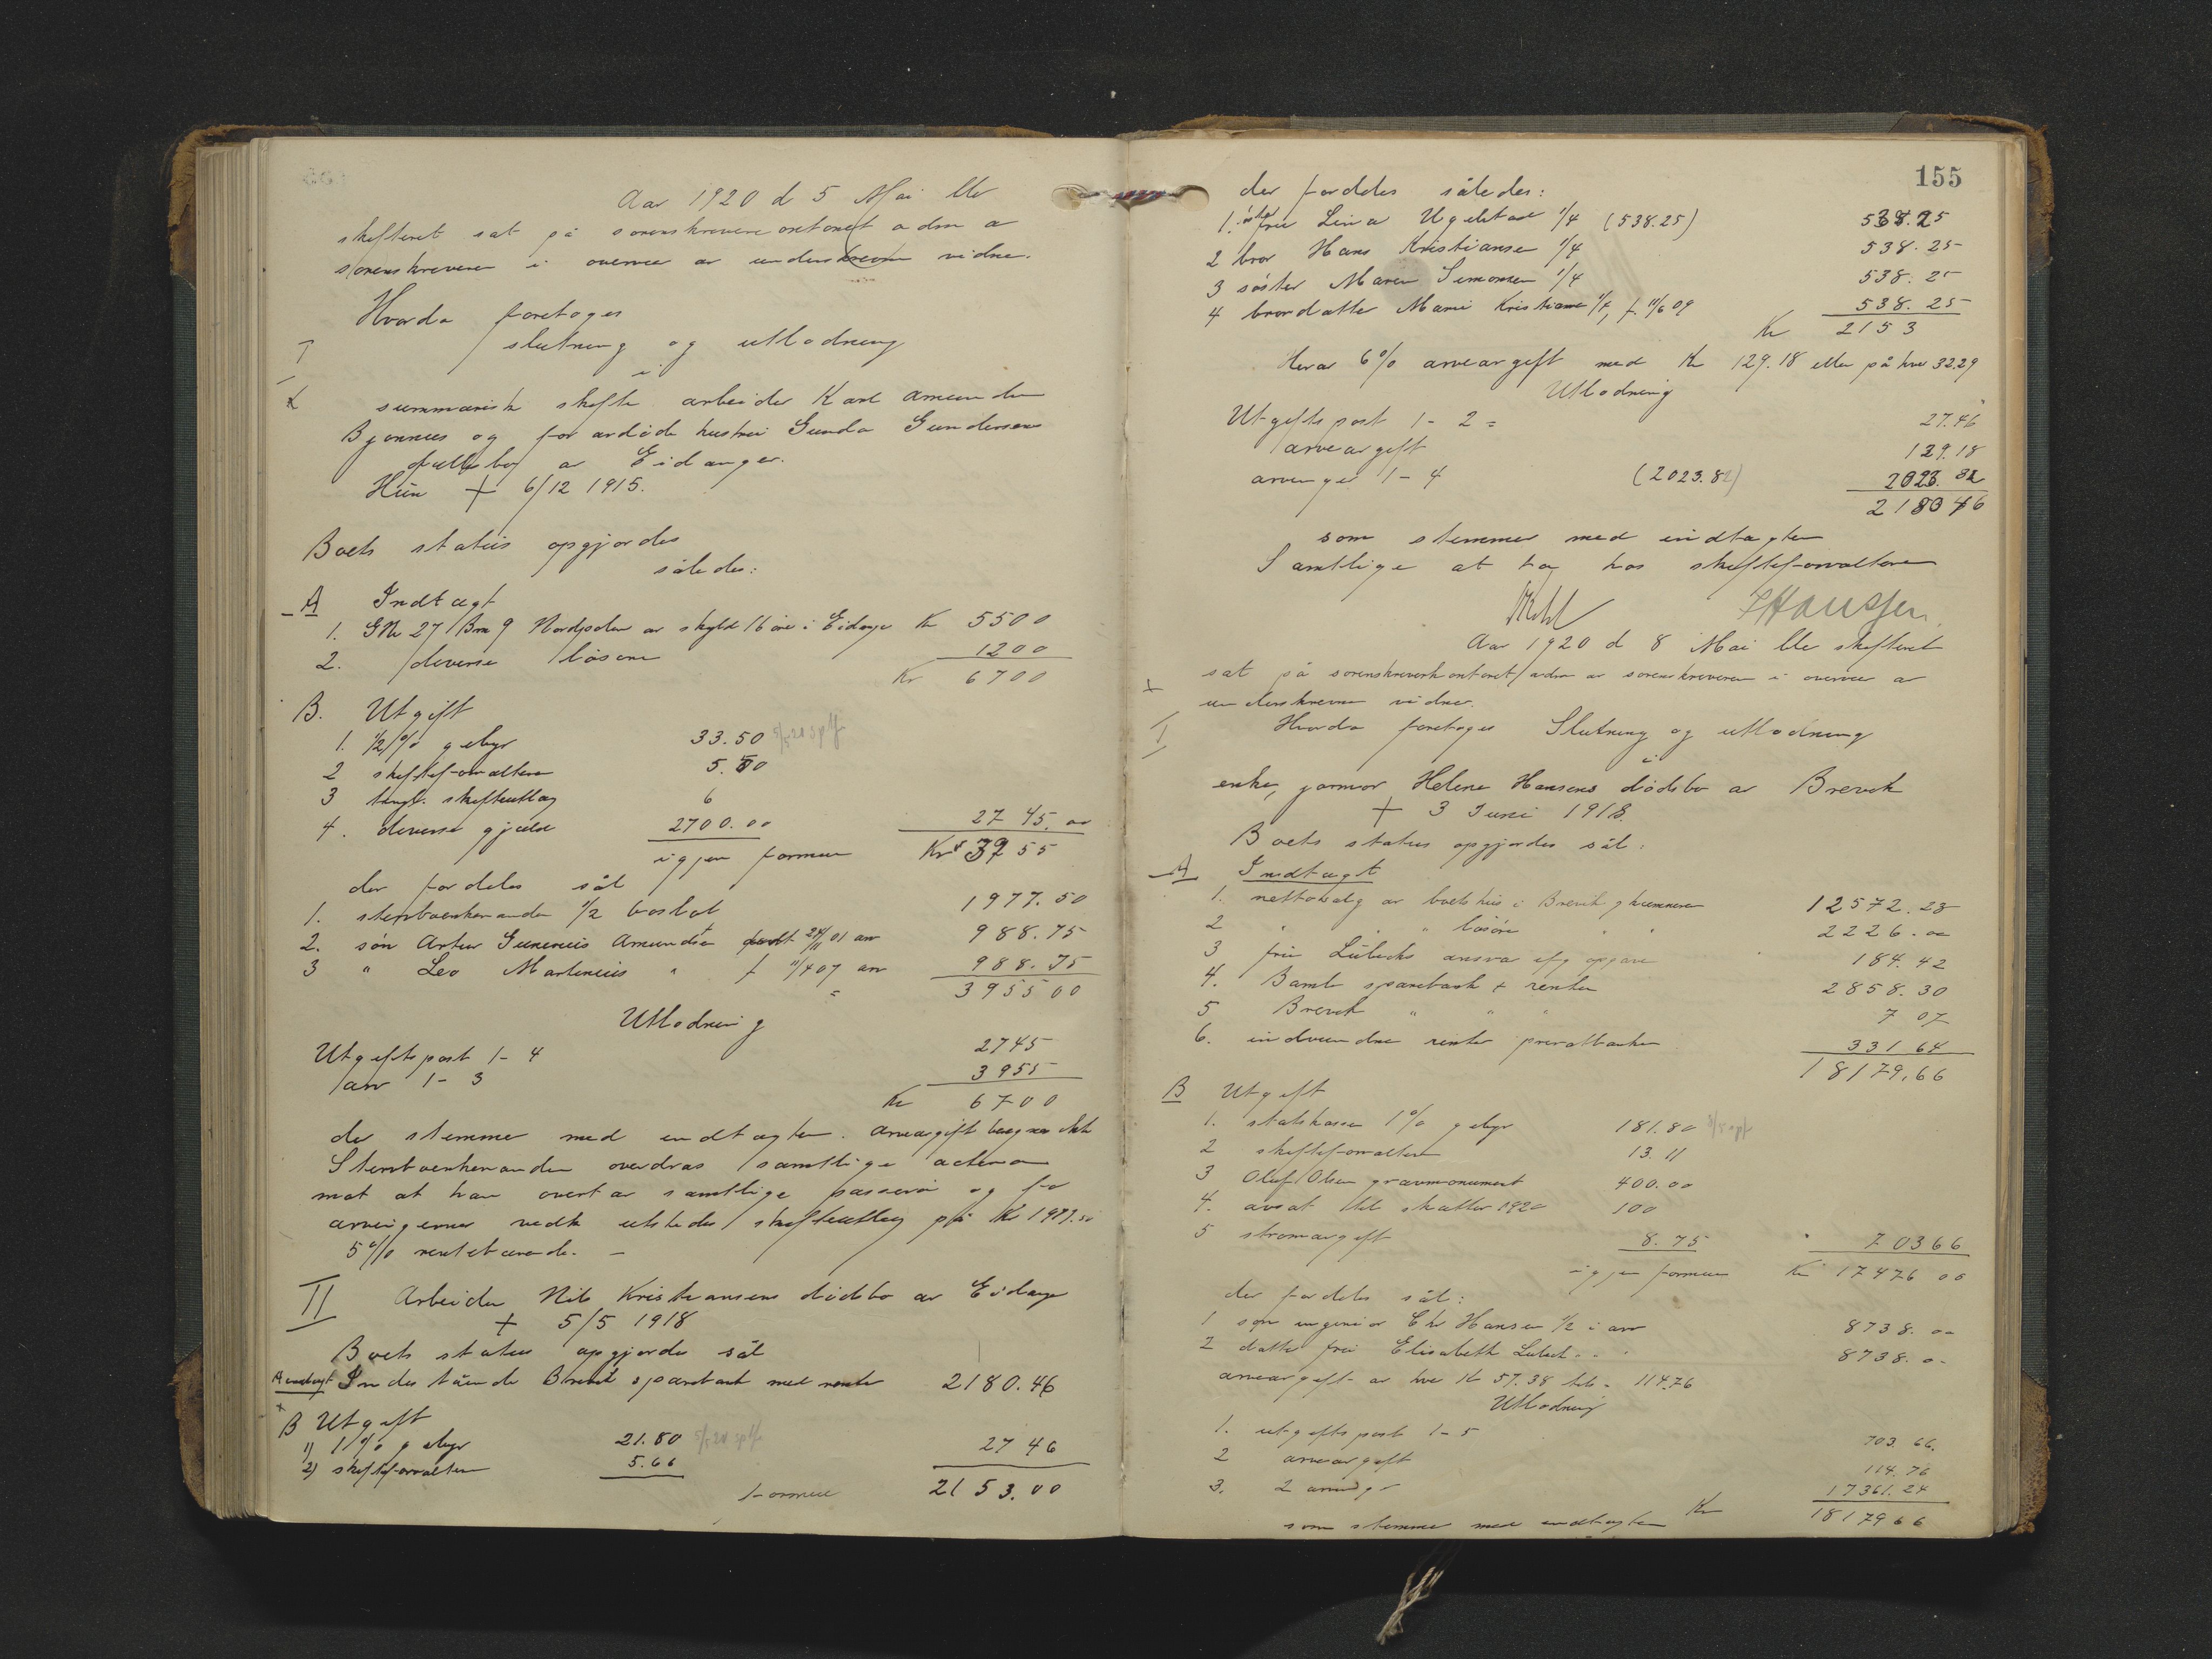 Aar 1920 d 5 Mai ble
skifteret sat på sorenskriverkontoret adm a
sorenskriveren i overvær av underskrevne vidne.
Hvorda foretoges
slutning og utlodning
I
i
summarisk skifte arbeider Karl Amundsen
Bjønnes og for avdøde hustru Gunda Gundersens
fællesbo av Eidanger.
Hun + 6/12 1915.
Boets status opgjordes
således:
A Indtægt
1. GNr 27 Brn 9 Nordpolen av skyld 16 øre i Eidanger Kr 5500
2. diverse løsøre 1200
Kr 6700
B. Utgift
1. 1/2 % gebyr 33.50
2 skifteforvalteren 5.50
3 tingl. skifteutlæg 6
4. diverse gjæld 2700.00 2745.00
igjen formue Kr 3955
der fordeles sål
1. stervboenkemanden 1/2 boslod 1977.50
2. søn Artur Gunerius Amundsen født 24/11 01 arv 988.75
3 " Leo Martinius " f 11/4 07 arv 988.75
= 3955 00
Utlodning
Utgiftspost 1-4 2745
arv 1-3 3955
Kr 6700
der stemmer med indtægten. Arveavgift beregnes ikke
Stervboenkemanden overdras samtlige activa
mot at han overtar samtlige passiva og for
arvingerne vedk utsteder skifteutlæg på Kr 1977.50
5 % rentebærende. -
II Arbeider Nils Kristiansens dødsbo av Eidanger
+ 5/5 1918
Boets status opgjordes sål
A indtægt Indestående Brevik sparebank med renter 2180.46
B Utgift
1) 1 % gebyr 21.80
2) skifteforvalteren 5.66 27 46
formue 2153.00
155
der fordeles således:
1. søster fru Lina Ugelstad 1/4 (538.25) 538.25
2 bror Hans Kristiansen 1/4 538.25
3 søster Maren Simonsen 1/4 538.25
4 brordatter Marie Kristiansen 1/4, f. 11/6 09 538.25
Kr 2153
Herav 6 % arveavgift med Kr 129.18 eller på hver 32.29
Utlodning
Utgiftspost 1-2 = 27.46
arveavgift 129.18
arvinger 1-4 (2023.82) 2023.82
2180 46
som stemmer med indtægten
Samtlige at tag hos skifteforvalteren
Hansen
Aar 1920 d 8 Mai ble skifteret
sat på sorenskriverkontoret adm av sorenskriveren i overvær av
underskrevne vidner.
I Hvorda foretoges Slutning og utlodning
i
enke, jormor Helene Hansens dødsbo av Brevik
+ 3 Juni 1918.
Boets status opgjordes sål:
A Indtægt
1. nettosalg av boets hus i Brevik 12572.23
2 " " " løsøre " " 2226.00
3 fru Lübecks ansvar efg opgave 184.42
4. Bamble sparebank + renter 2858.30
5 Brevik " " " 7 07
6. indvundne renter privatbanken 331 64
18179,66
B Utgift
1. statskassen 1 % gebyr 181.80
2 skifteforvalteren 13.11
3 Oluf Olsen gravmonument 400.00
4. avsat til skatter 1920 100
5 strømavgift 8.75 703 66
igjen formue Kr 17476 00
der fordeles sål:
1 søn ingeniør Chr Hansen 1/2 i arv 8738.00
2 datter fru Elisabeth Lübeck " " 8738.00
arveavgift av hver Kr 57.38 tils. 114.76
Utlodning
1. utgiftspost 1-5 703.66.
2 arveavgift 114.76
3. 2 arvinger 17361.24
som stemmer med indtægten Kr 18179 66